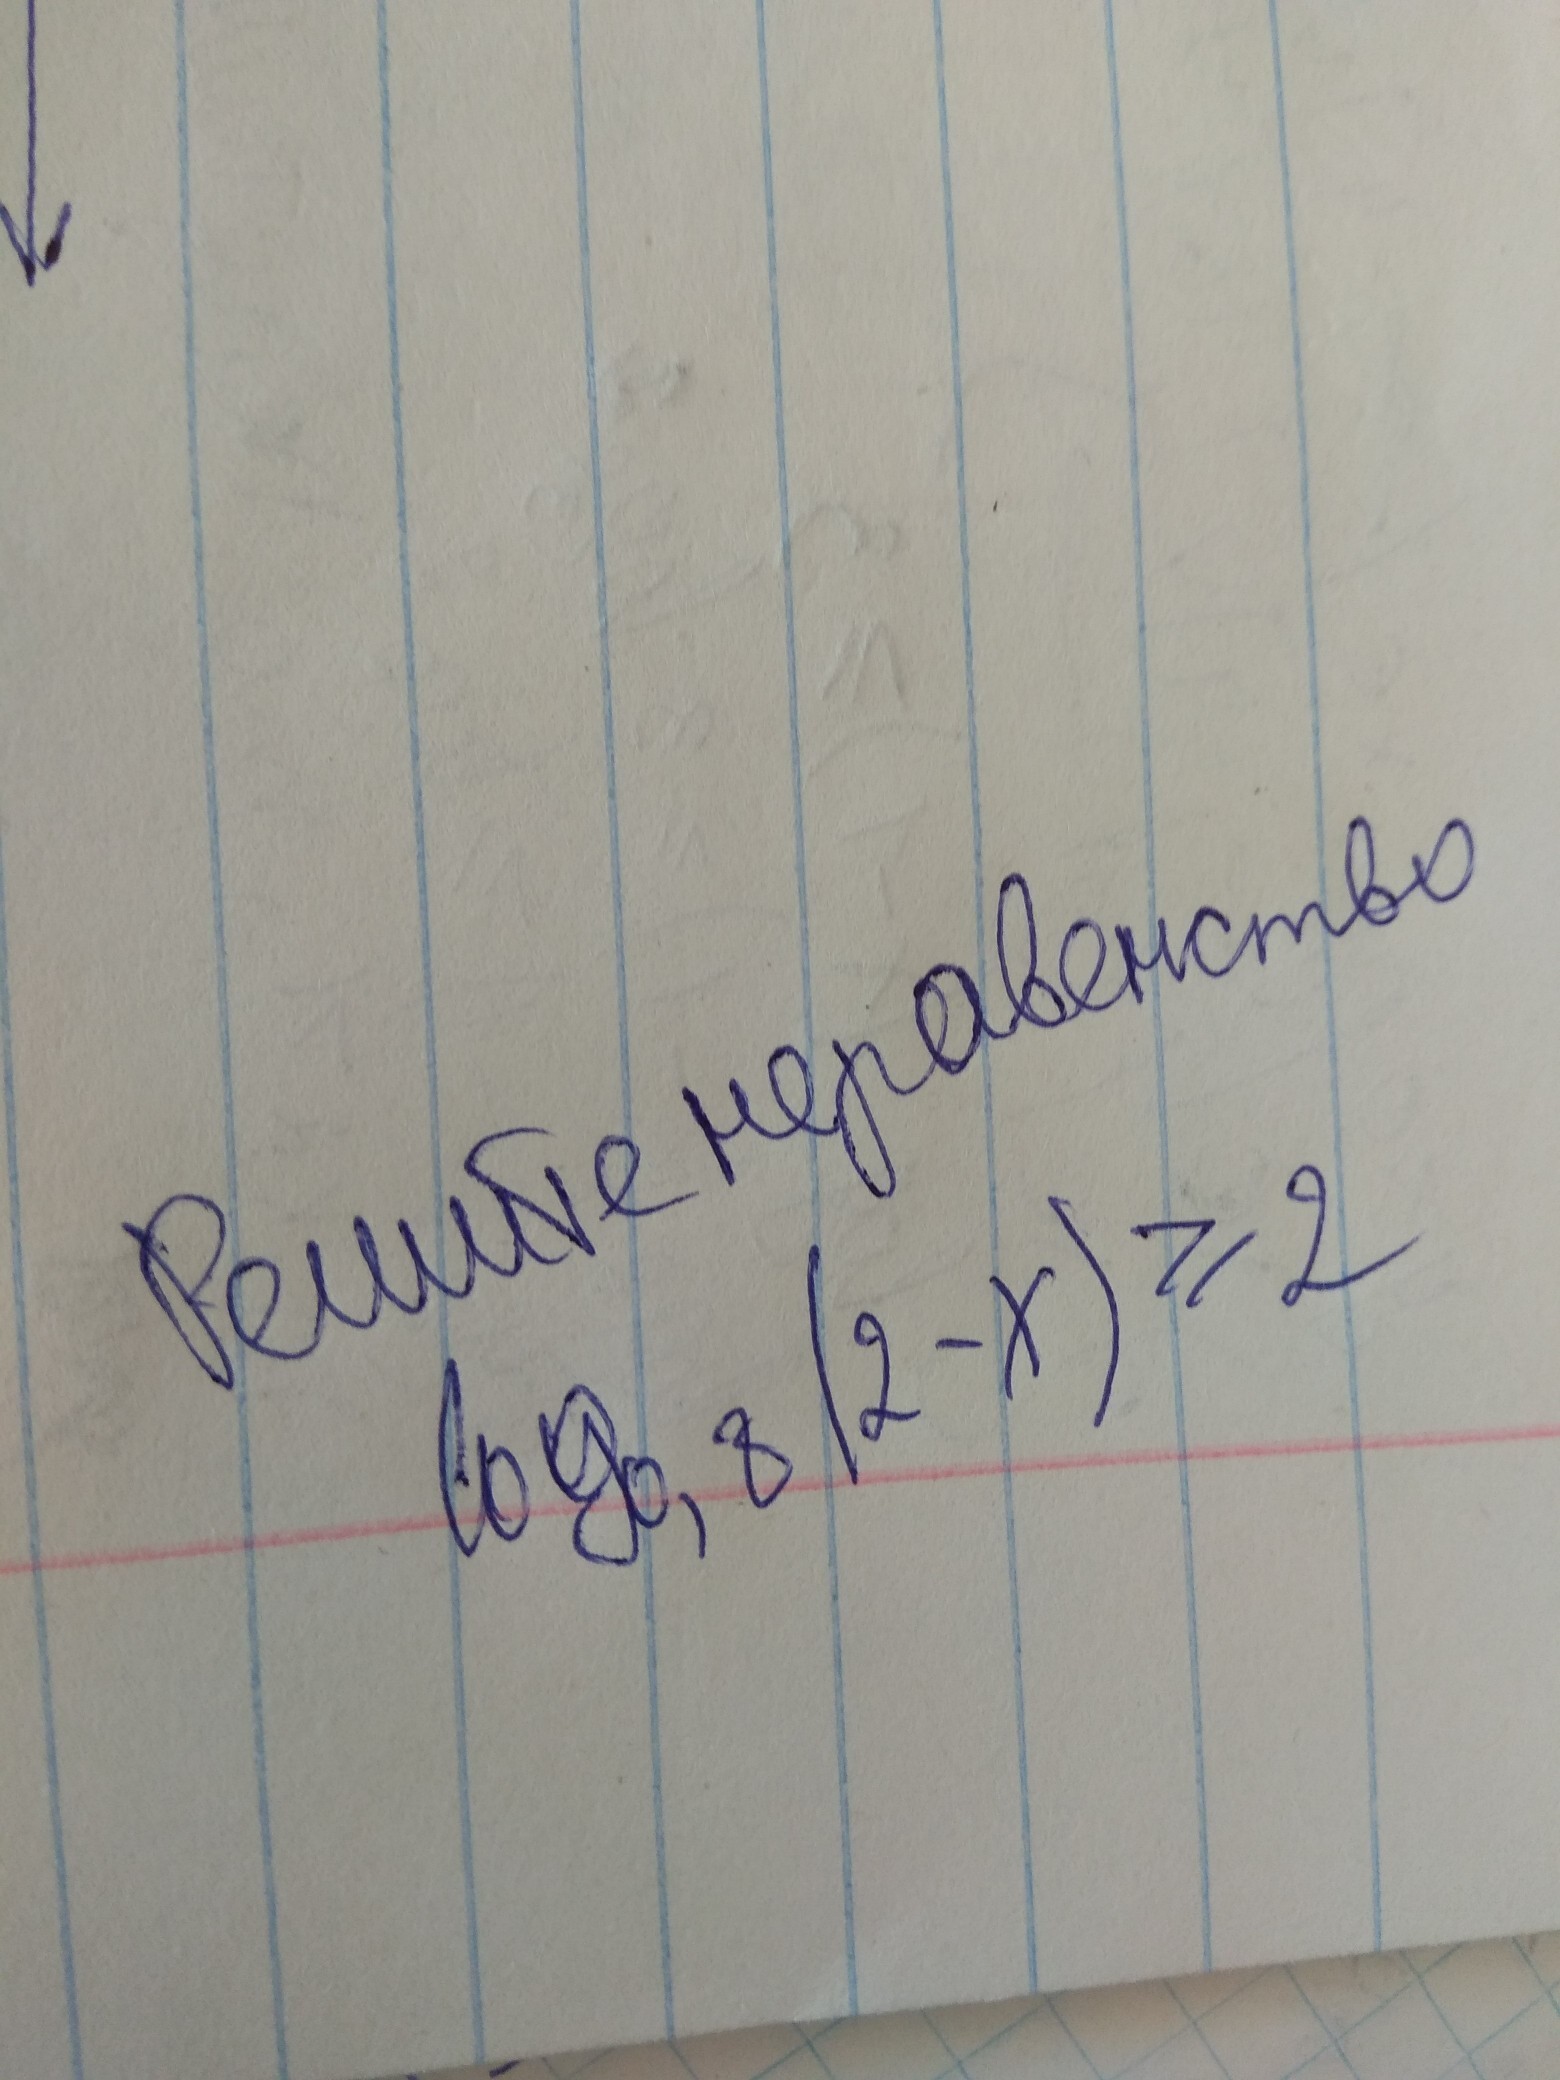 Решите неравенство
log₀,₈(2-x) ⩾ 2